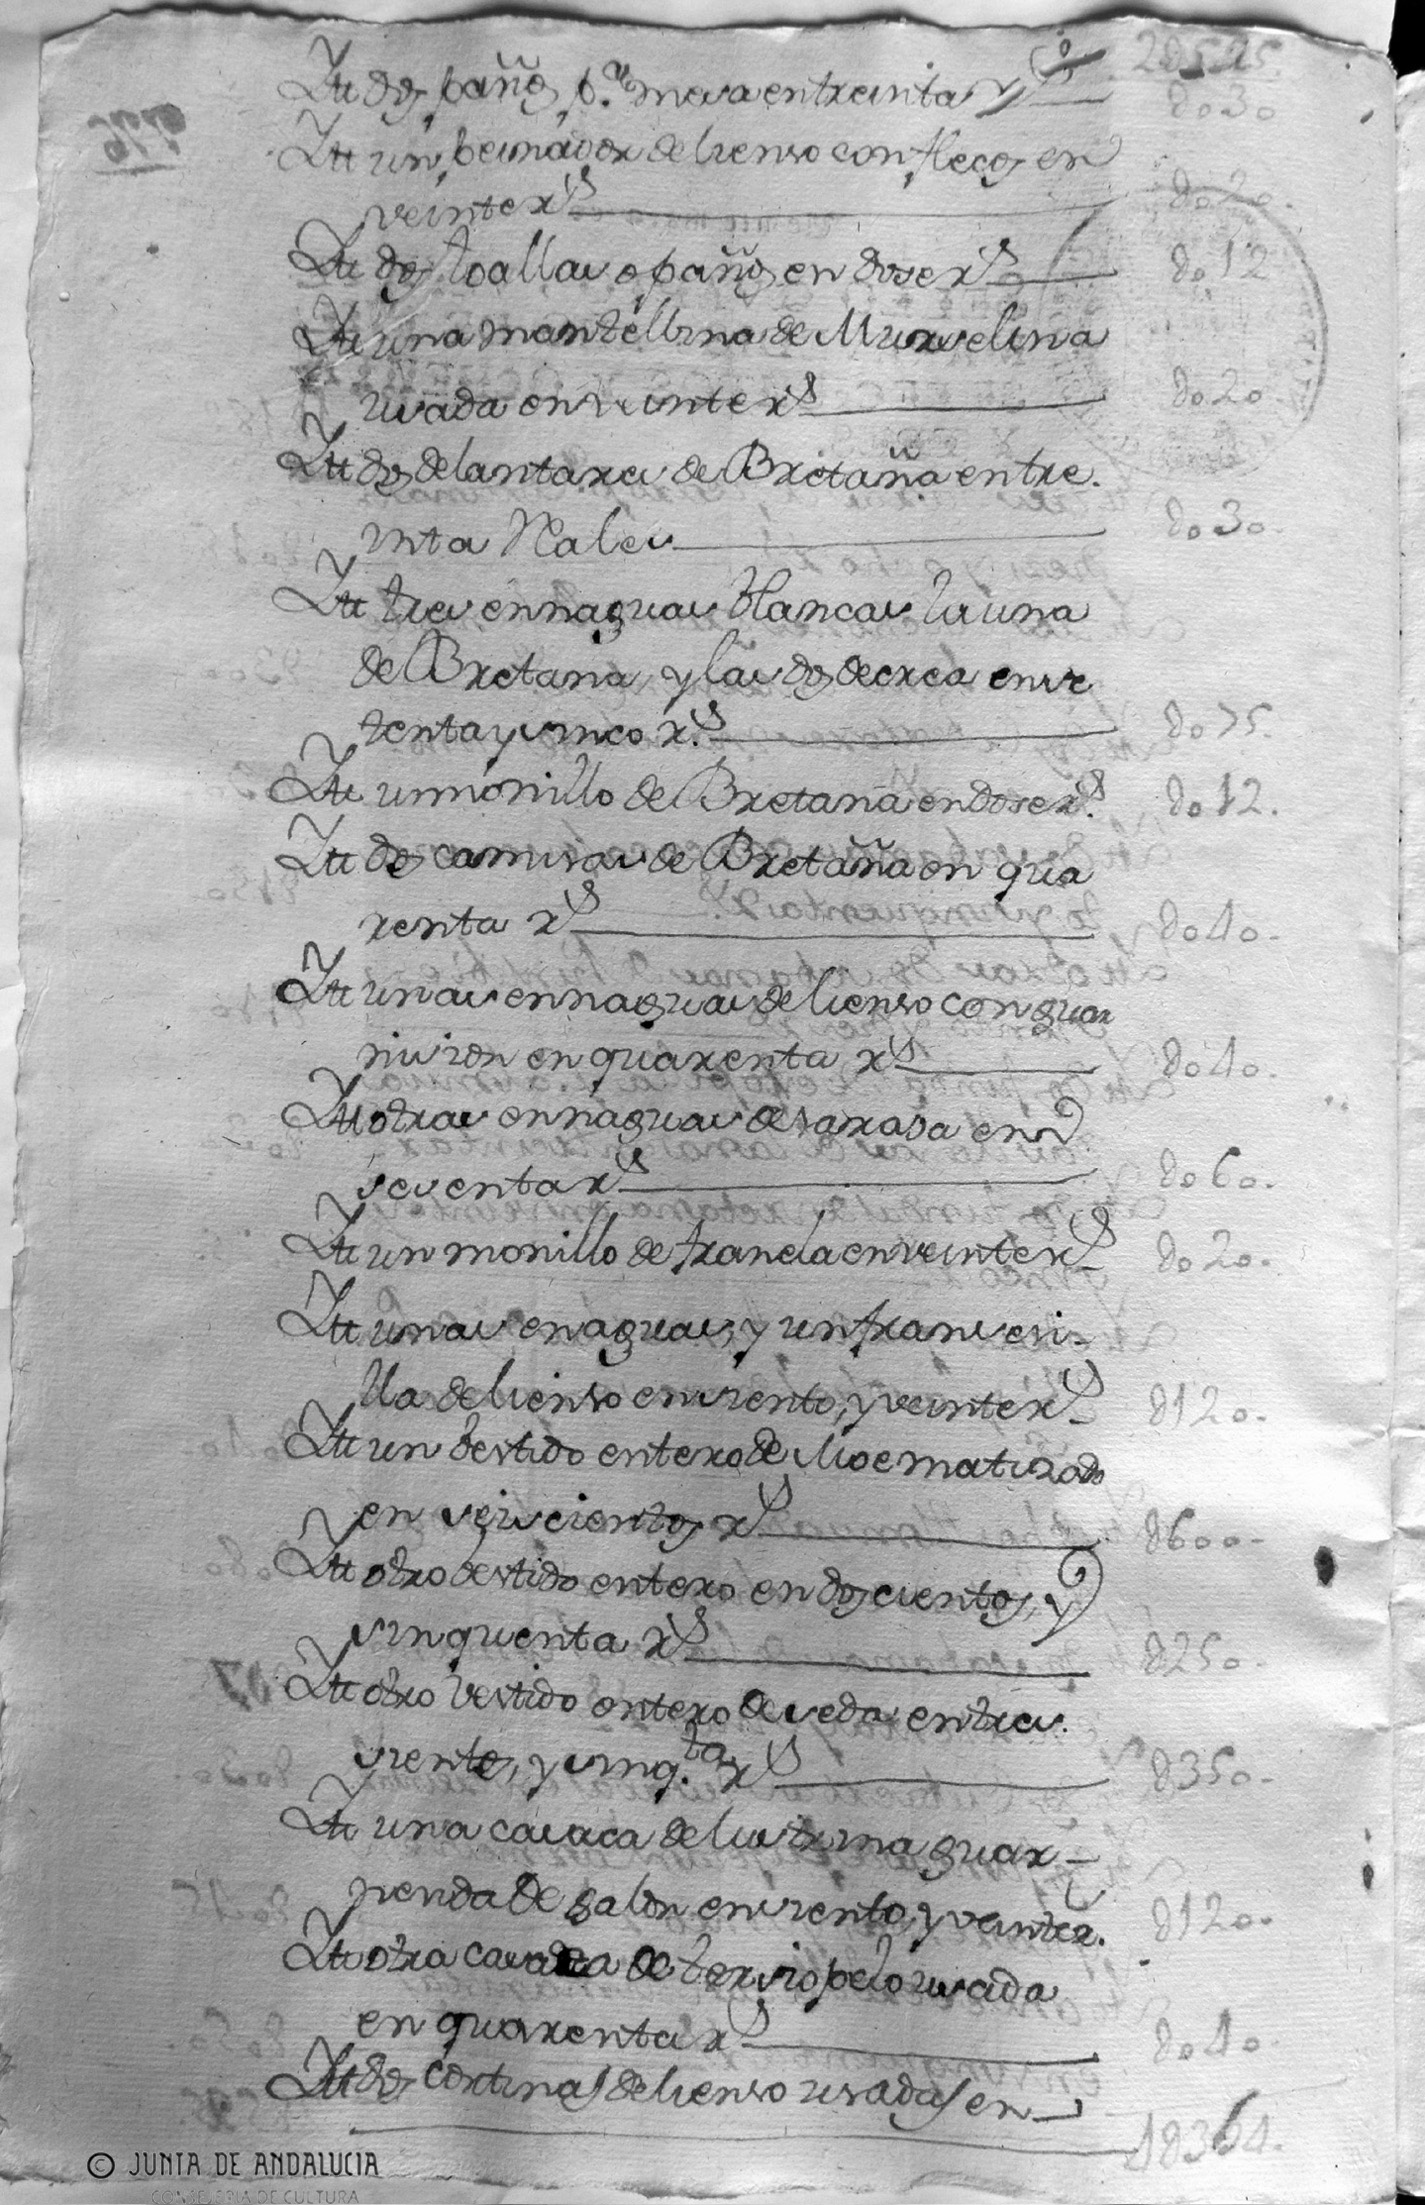 2U525.
Itt dos paños p.ª mesa en treinta rs — Uo30
Itt un peinador de lienso con flecos en
veinte rs — Uo20.
Itt dos toallas o paños en dose rs — Uo12
Itt una mantellina de Murselina
usada en veinte rs — Uo20.
Itt dos delantares de Bretaña en tre.
inta Reales — Uo30.
Itt tres ennaguas blancas la una
de Bretana, y las dos de crea en se
tenta y sinco rs. — Uo75.
Itt un monillo de Bretana en dose rs. Uo12.
Itt dos camisas de Bretaña en qua
renta rs — Uo40.
Itt unas ennaguas de lienso con guar
nision en quarenta rs — Uo40.
Itt otras ennaguas de sarasa en
sesenta rs — Uo60.
Itt un monillo de franela en veinte rs — Uo20.
Itt unas enaguas, y un
lla de lienso en siento, y veinte rs — U120.
Itt un bestido entero de Moe matisado
en seiscientos rs — U600.
Itt otro bestido entero en doscientos, y
sinquenta rs — U250.
Itt otro bestido entero de seda en tres.
siento, y sinq.ta rs — U350.
Itt una casaca de lustrina guar-
nesida de galon en siento, y veinte r. U120.
Itt otra casaca de tersiopelo usada
en quarenta rs — Uo40.
Itt dos cortinas de lienso usadas en —
1U364.
© JUNTA DE ANDALUCIA
CONSEJERIA DE CULTURA